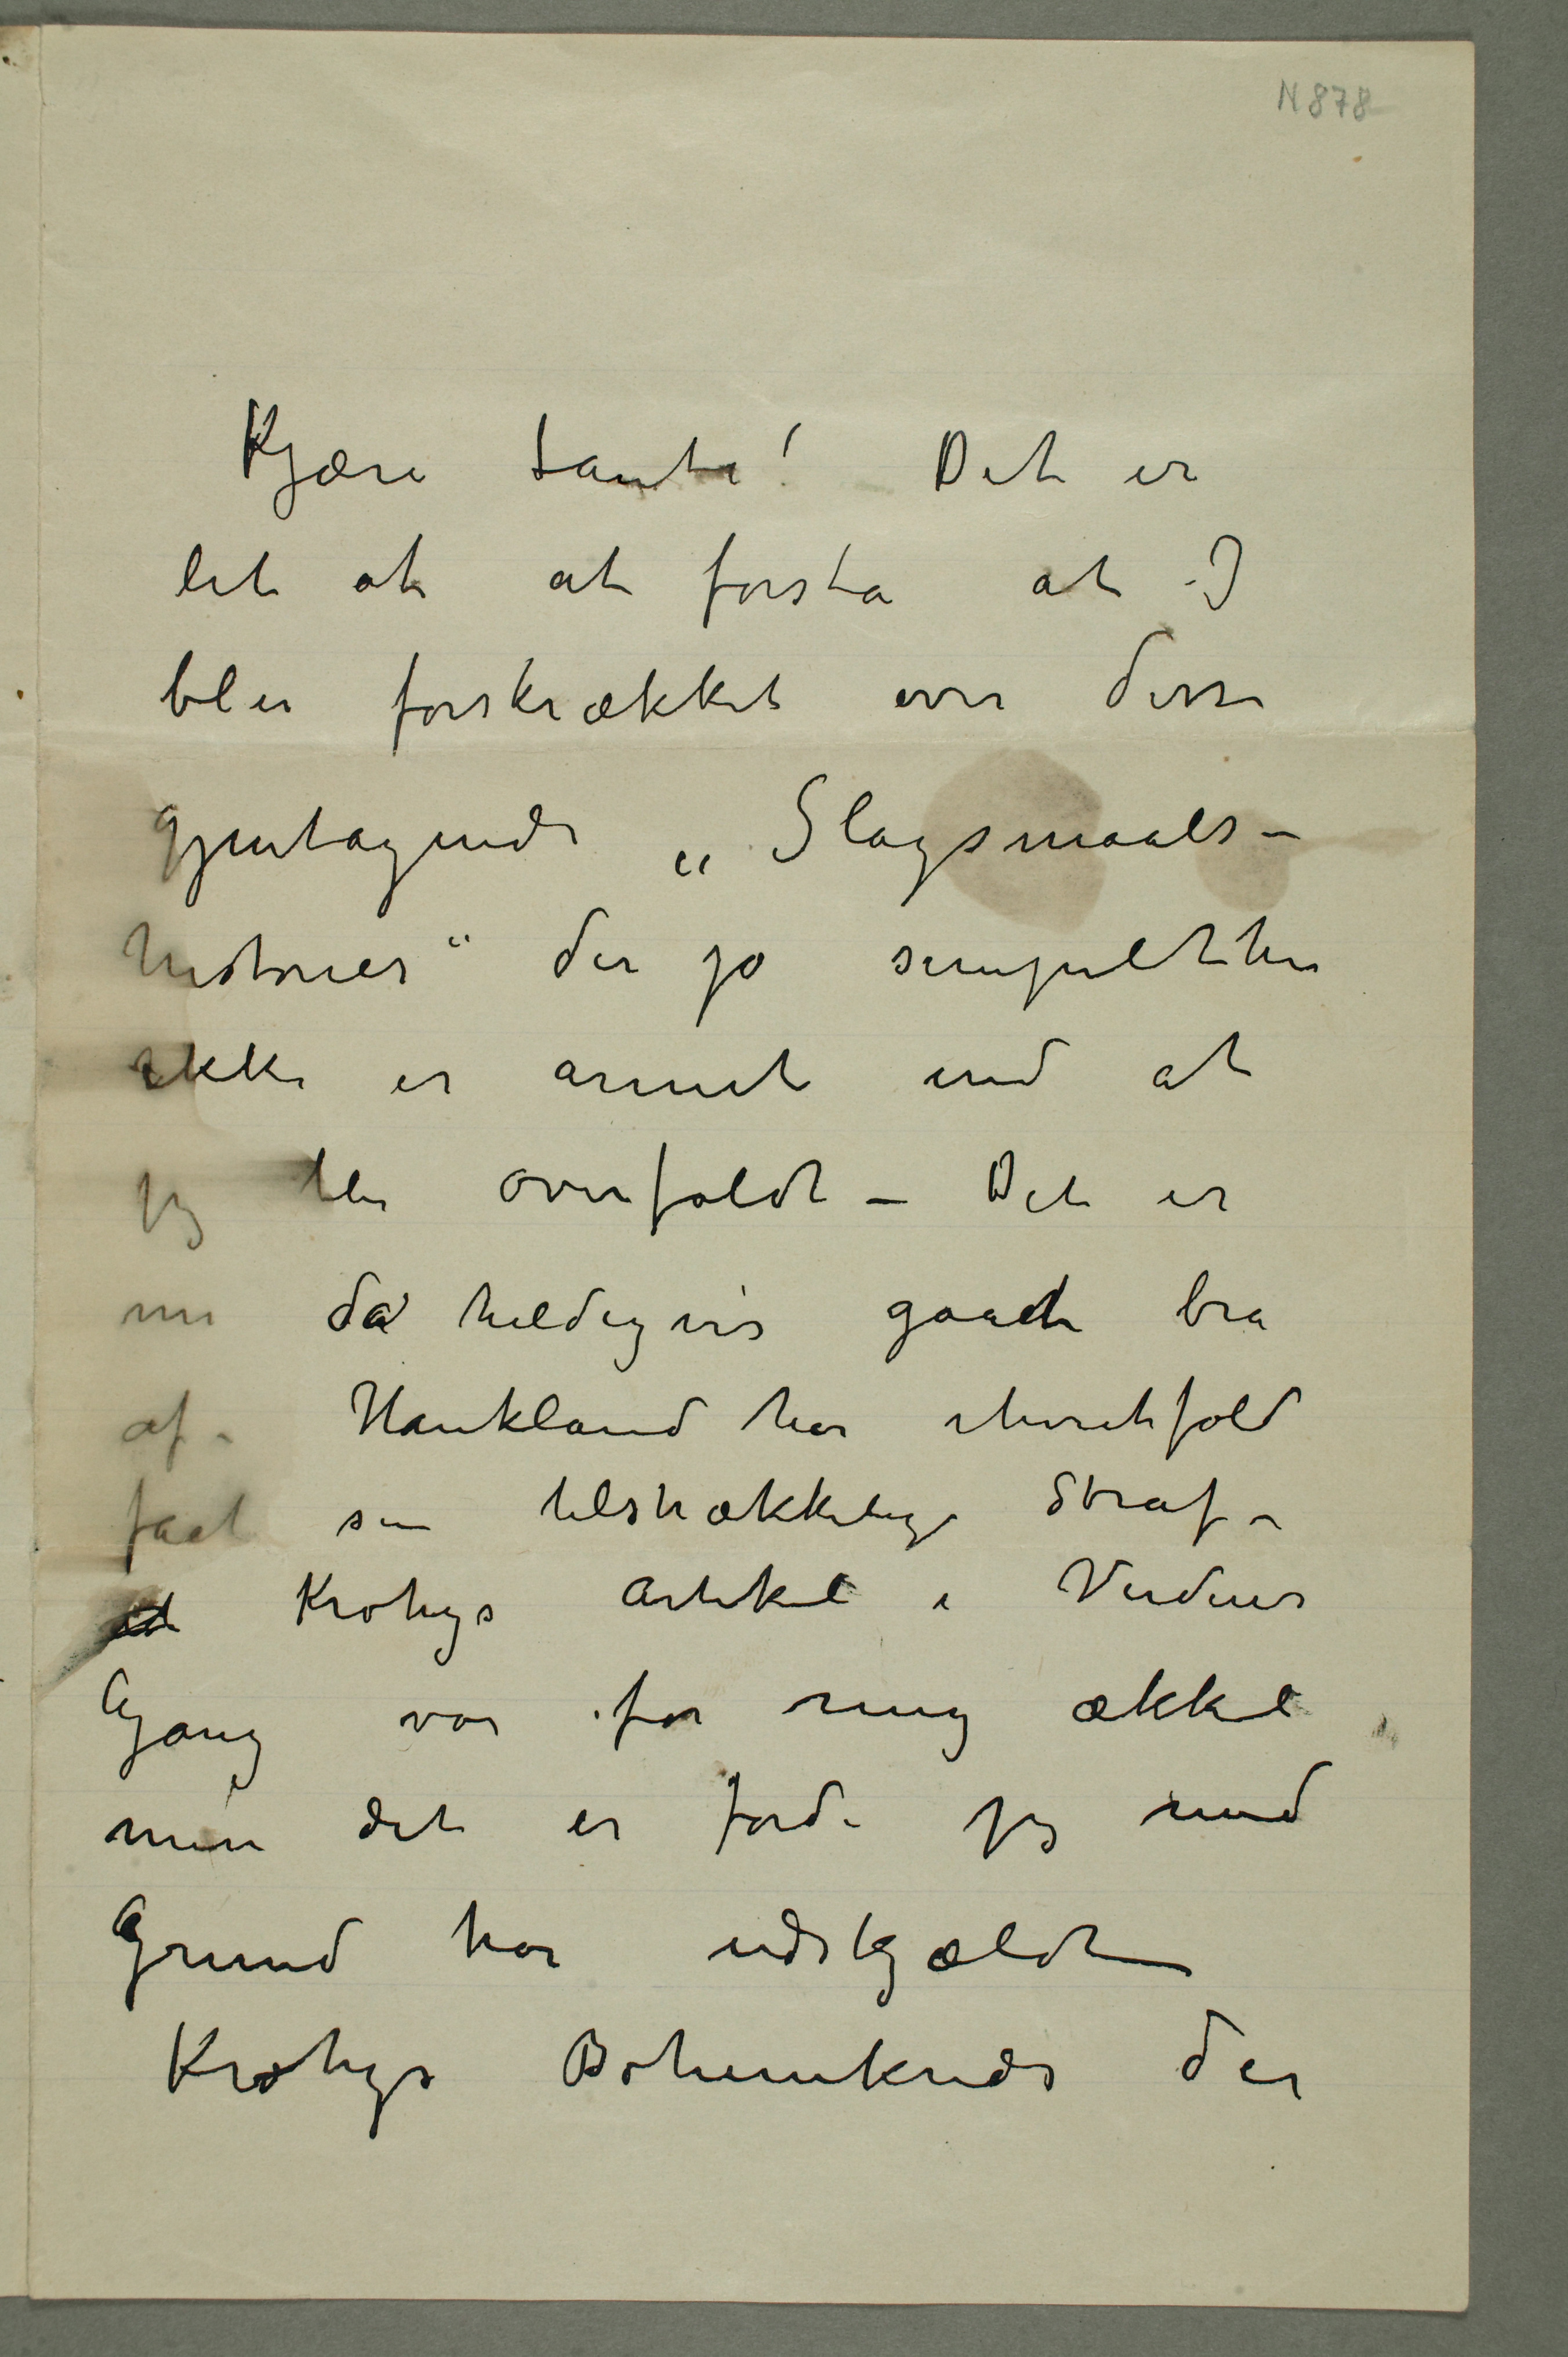 N 878
Kjære tante! Det er
let at at forstå at I
bler forskrækket over disse
gjentagende „Slagsmaals-
historier“ der jo simpelthen
ikke er annet end at
jeg blir overfaldt – Det er
nu da heldigvis gaadt bra
af – Haukland har ihvertfald
faat sin tilstrækkelige Straf –
Krohgs Artikel i Verdens
Gang var for mig ækkel
men det er fordi jeg med
Grund har udskjældt
Krohgs Bohemkreds der